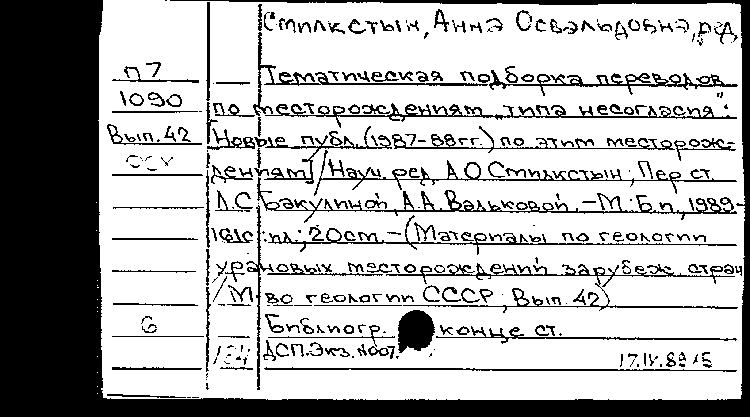 Стилкстын, Анна Освальдовна, ред.
П7 Тематическая подборка переводов
1090 по месторождениям „типа несогласия“:
Вып.42 [Новые публ. (1987-88гг.) по этим месторож-
дениям] / Науч. ред. А О Стилкстын; Пер ст.
Л.С Бакулиной, А.А. Вальковой. -М: Б.и, 1989-
161с: ил.; 20см. -(Материалы по геологии
урановых месторождений зарубеж стран
/М-во геологии СССР; Вып. 42)
6 Библиогр. конце ст.
184 ДСП. Экз. N007. 17.IV.89